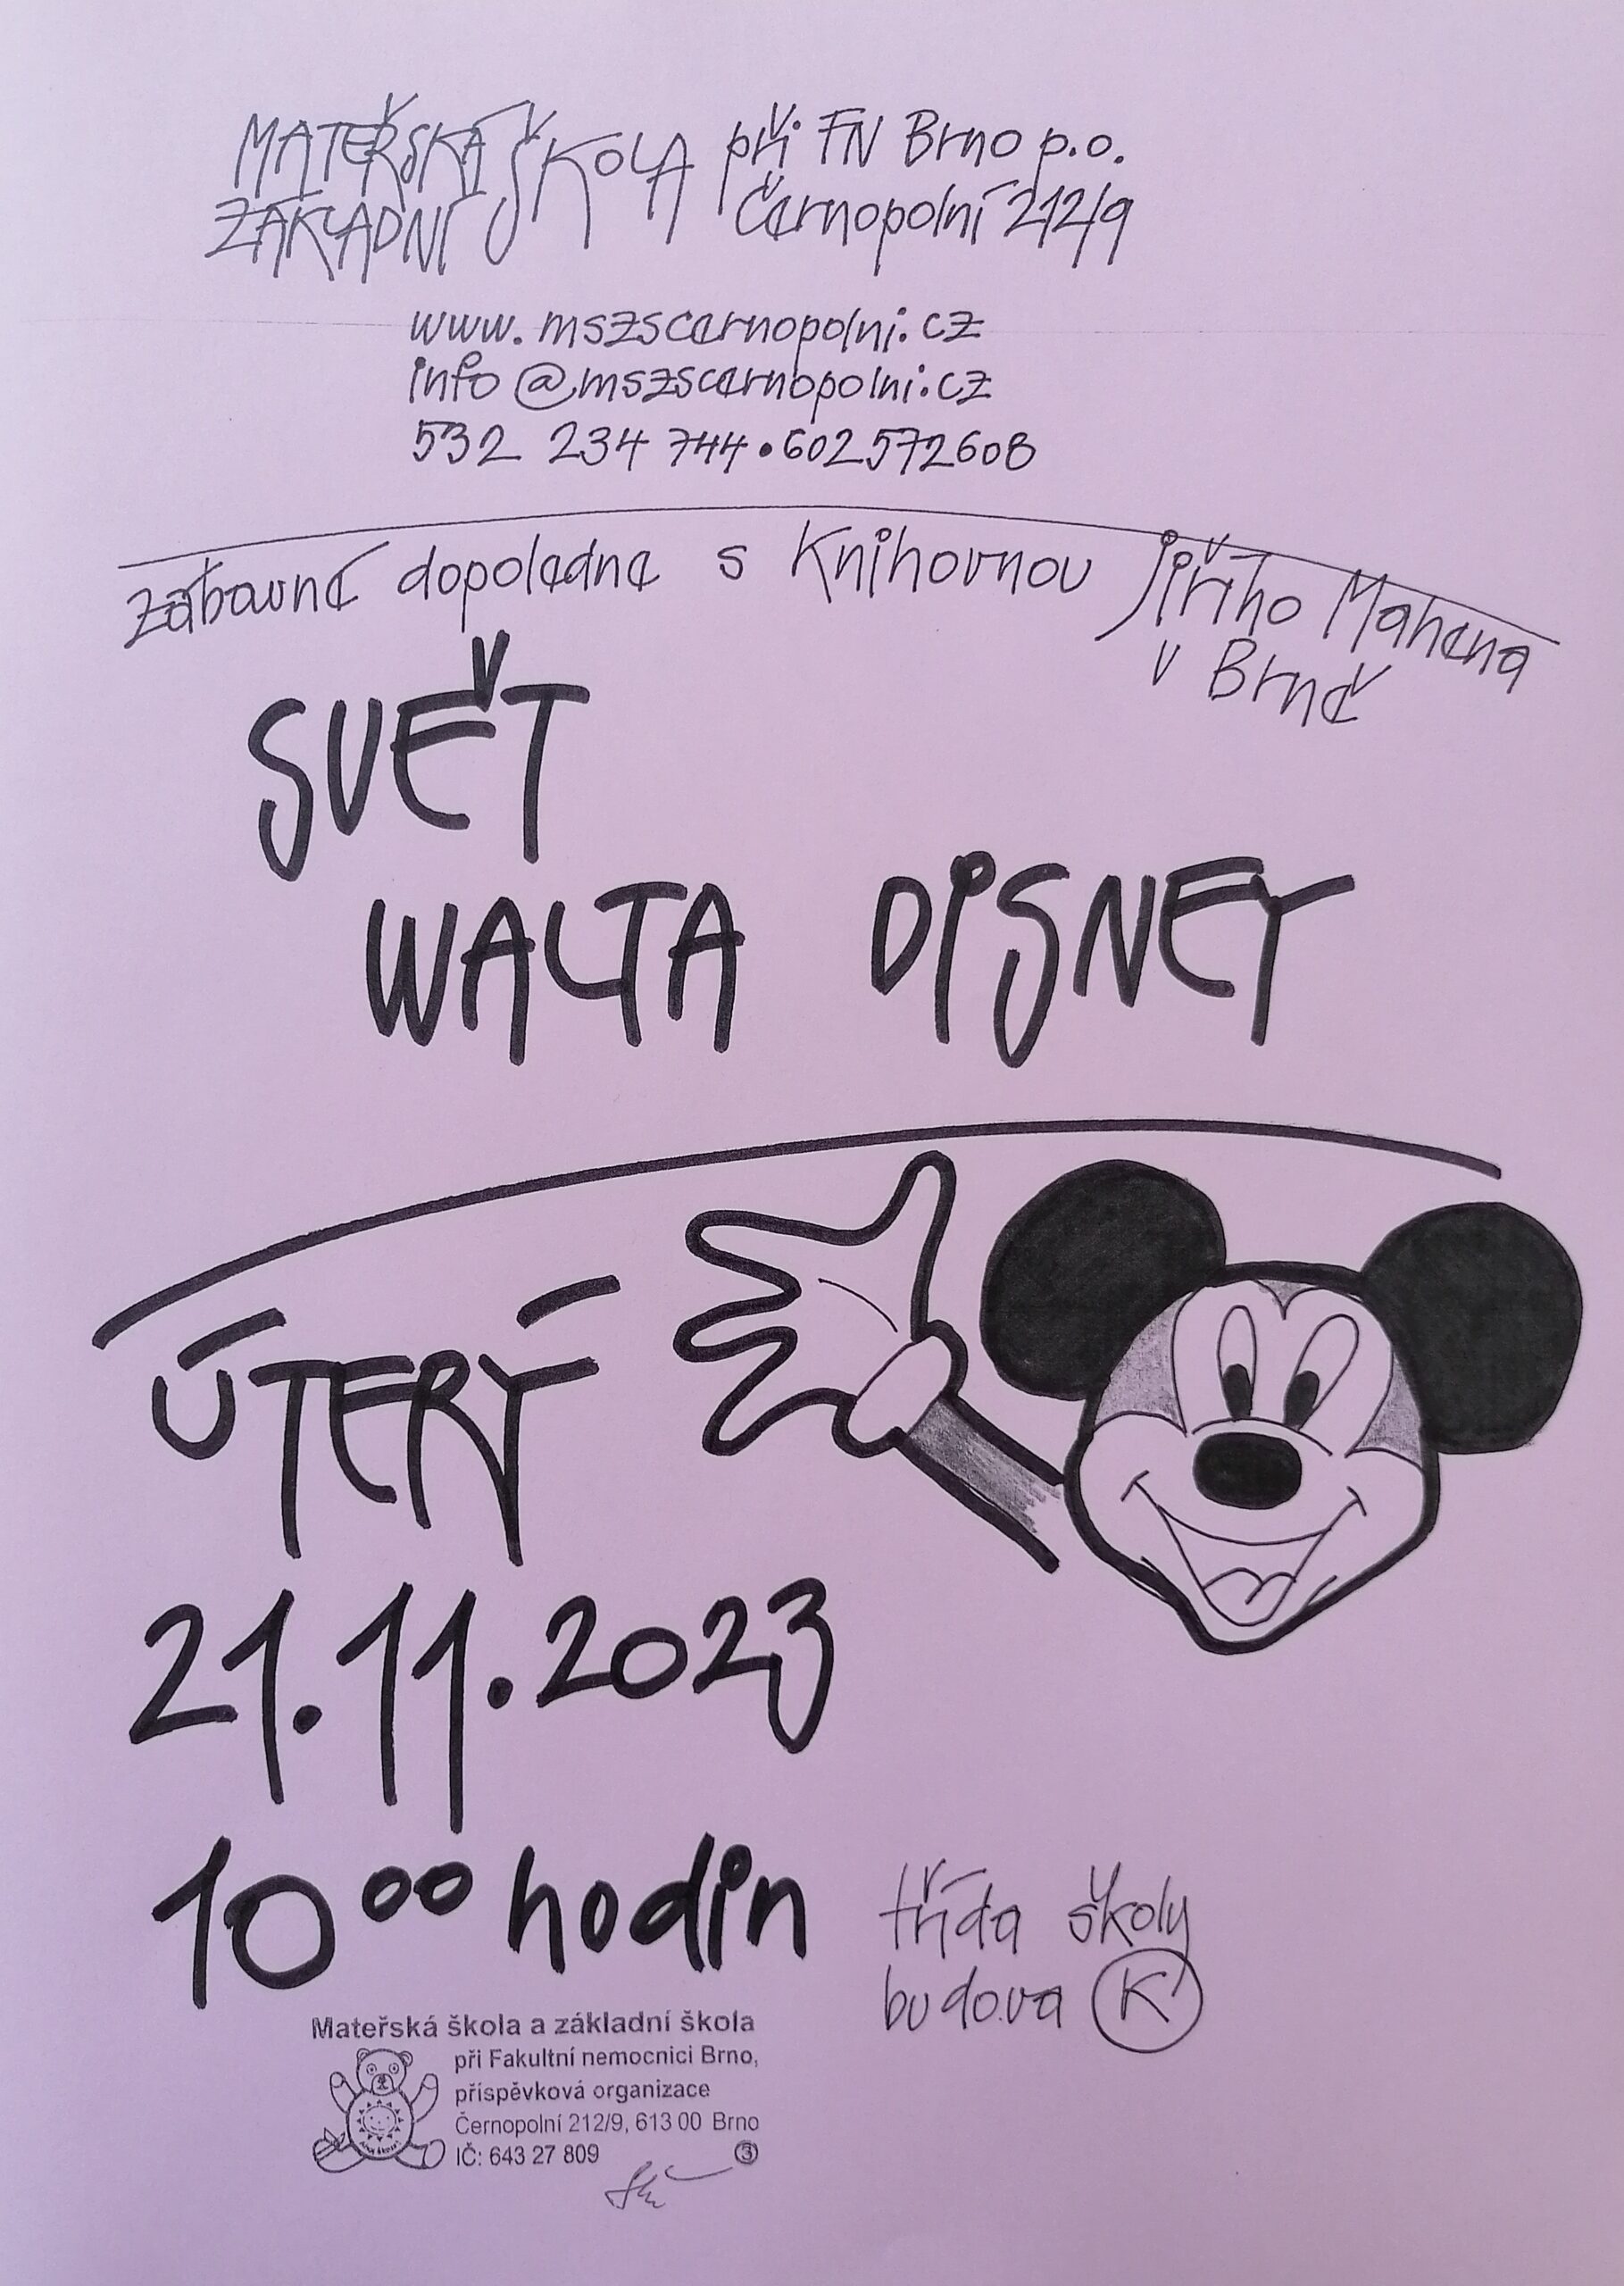 MATEŘSKÁ ŠKOLA při FN Brno p.o.
ZÁKLADNÍ Černopolní 212/9
www.mszscernopolni.cz
info@mszscernopolni.cz
532 234 744 • 602572608
zábavné dopoledne s Knihovnou Jiřího Mahena
v Brně
SVĚT
WALTA DISNEY
ÚTERÝ
21.11.2023
10⁰⁰ hodin
třída školy
budova K
Mateřská škola a základní škola
při Fakultní nemocnici Brno,
příspěvková organizace
Černopolní 212/9, 613 00 Brno
IČ: 643 27 809
3